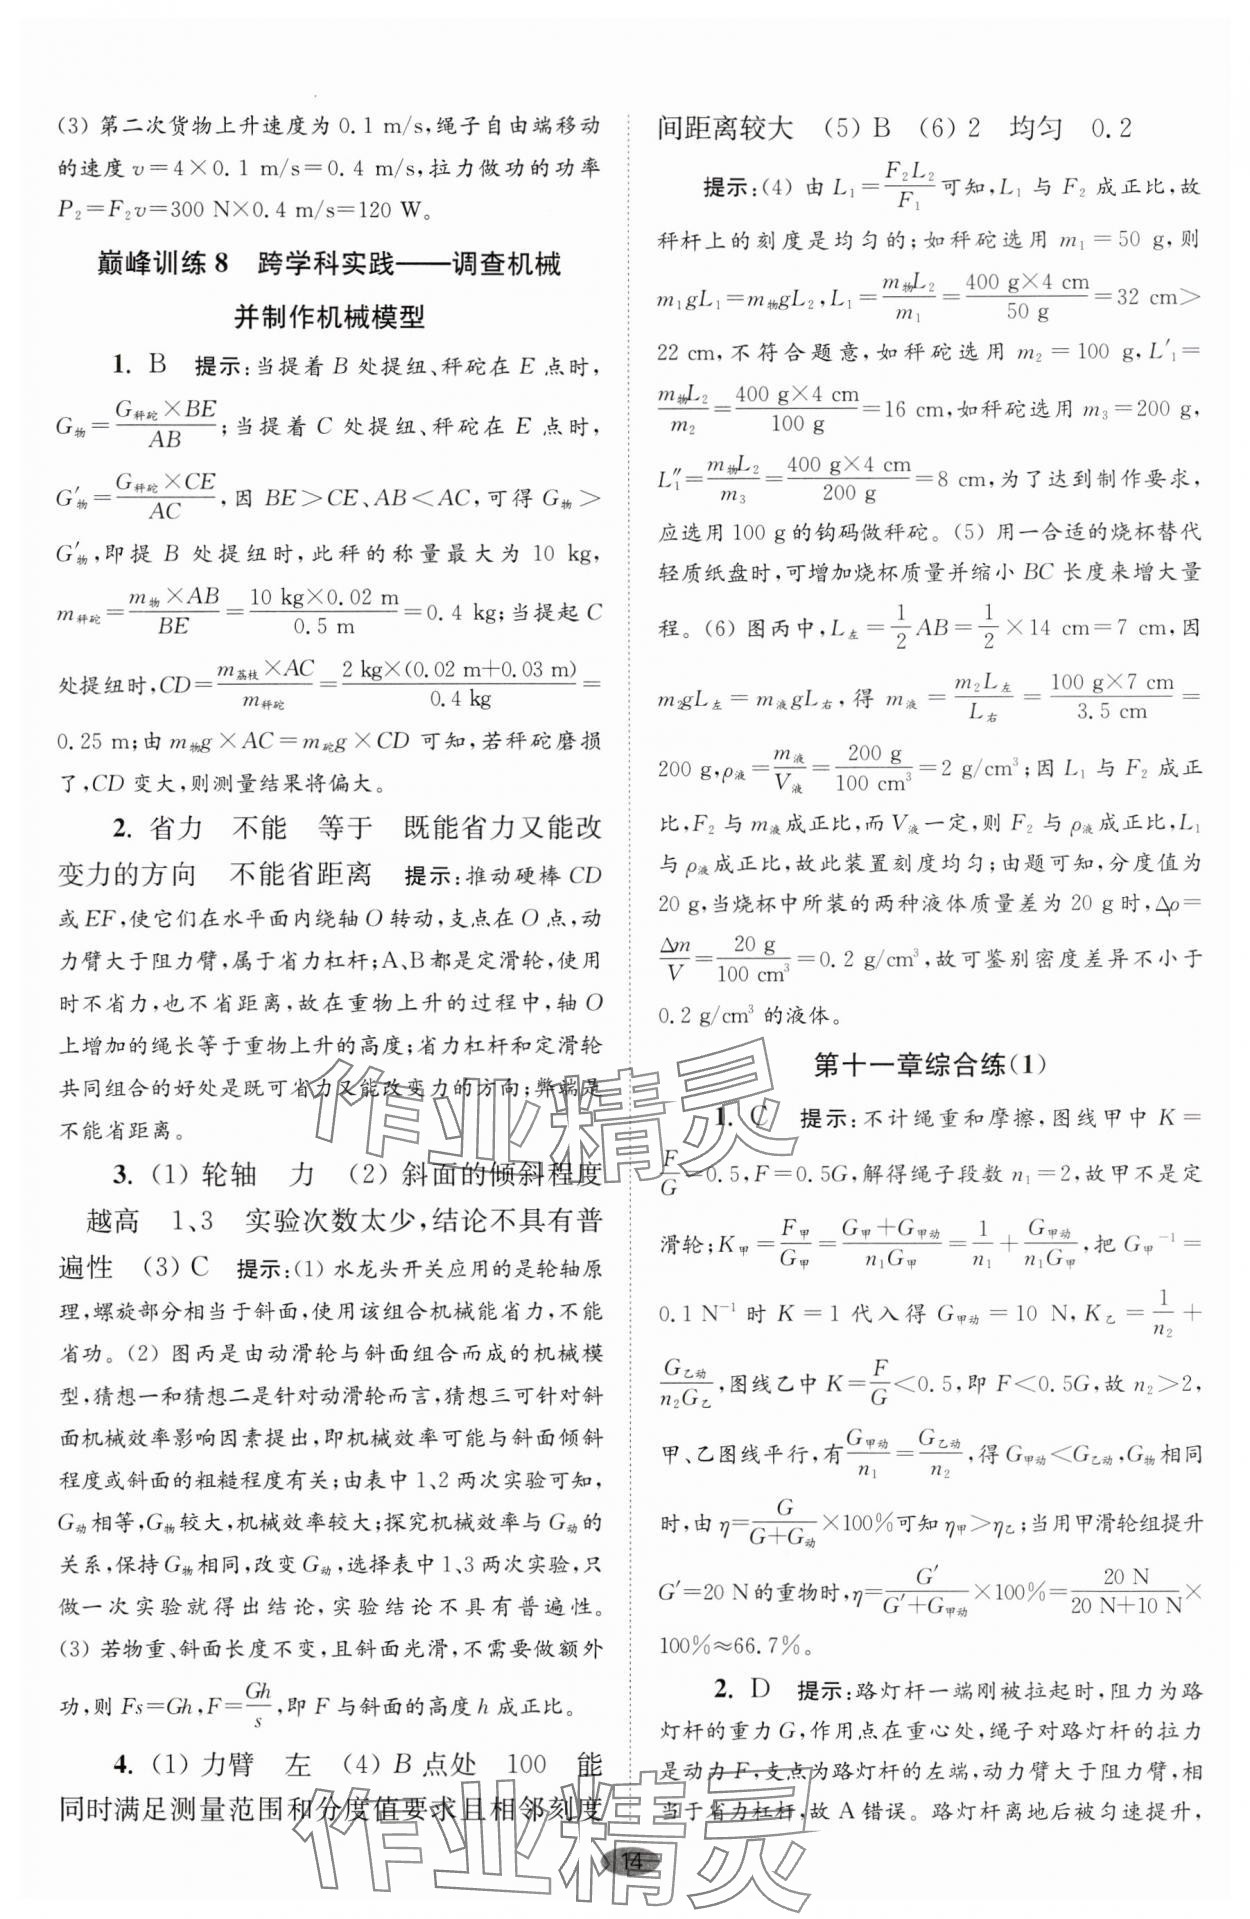 (3) 第二次货物上升速度为 0.1 m/s,绳子自由端移动
的速度 v=4×0.1 m/s=0.4 m/s,拉力做功的功率
P₂=F₂v=300 N×0.4 m/s=120 W。
巅峰训练8 跨学科实践——调查机械
并制作机械模型
1. B 提示:当提着 B 处提纽、秤砣在 E 点时,
G物=G秤砣×BE/AB;当提着 C 处提纽、秤砣在 E 点时,
G′物=G秤砣×CE/AC,因 BE>CE、AB<AC,可得 G物>
G′物,即提 B 处提纽时,此秤的称量最大为 10 kg,
m秤砣=m物×AB/BE=10 kg×0.02 m/0.5 m=0.4 kg;当提起 C
处提纽时,CD=m荔枝×AC/m秤砣=2 kg×(0.02 m+0.03 m)/0.4 kg=
0.25 m;由 m物g×AC=m砣g×CD 可知,若秤砣磨损
了,CD 变大,则测量结果将偏大。
2. 省力 不能 等于 既能省力又能改
变力的方向 不能省距离 提示:推动硬棒 CD
或 EF,使它们在水平面内绕轴 O 转动,支点在 O 点,动
力臂大于阻力臂,属于省力杠杆;A、B都是定滑轮,使用
时不省力,也不省距离,故在重物上升的过程中,轴 O
上增加的绳长等于重物上升的高度;省力杠杆和定滑轮
共同组合的好处是既可省力又能改变力的方向;弊端是
不能省距离。
3. (1) 轮轴 力 (2) 斜面的倾斜程度
越高 1、3 实验次数太少,结论不具有普
遍性 (3) C 提示:(1) 水龙头开关应用的是轮轴原
理,螺旋部分相当于斜面,使用该组合机械能省力,不能
省功。(2) 图丙是由动滑轮与斜面组合而成的机械模
型,猜想一和猜想二是针对动滑轮而言,猜想三可针对斜
面机械效率影响因素提出,即机械效率可能与斜面倾斜
程度或斜面的粗糙程度有关;由表中1、2两次实验可知,
G动相等,G物较大,机械效率较大;探究机械效率与G动的
关系,保持G物相同,改变G动,选择表中1、3两次实验,只
做一次实验就得出结论,实验结论不具有普遍性。
(3) 若物重、斜面长度不变,且斜面光滑,不需要做额外
功,则 Fs=Gh,F=Gh/s,即 F 与斜面的高度 h 成正比。
4. (1) 力臂 左 (4) B点处 100 能
同时满足测量范围和分度值要求且相邻刻度
间距离较大 (5) B (6) 2 均匀 0.2
提示:(4) 由 L₁=F₂L₂/F₁可知,L₁ 与 F₂ 成正比,故
秤杆上的刻度是均匀的;如秤砣选用 m₁=50 g,则
m₁gL₁=m物gL₂,L₁=m物L₂/m₁=400 g×4 cm/50 g=32 cm>
22 cm,不符合题意,如秤砣选用 m₂=100 g,L′₁=
m物L₂/m₂=400 g×4 cm/100 g=16 cm,如秤砣选用 m₃=200 g,
L″₁=m物L₂/m₃=400 g×4 cm/200 g=8 cm,为了达到制作要求,
应选用100 g的钩码做秤砣。(5) 用一合适的烧杯替代
轻质纸盘时,可增加烧杯质量并缩小 BC 长度来增大量
程。(6) 图丙中,L左=1/2AB=1/2×14 cm=7 cm,因
m₂gL左=m液gL右,得 m液=m₂L左/L右=100 g×7 cm/3.5 cm=
200 g,ρ液=m液/V液=200 g/100 cm³=2 g/cm³;因 L₁ 与 F₂ 成正
比,F₂ 与m液成正比,而V液一定,则 F₂ 与ρ液成正比,L₁
与ρ液成正比,故此装置刻度均匀;由题可知,分度值为
20 g,当烧杯中所装的两种液体质量差为 20 g 时,Δρ=
Δm/V=20 g/100 cm³=0.2 g/cm³,故可鉴别密度差异不小于
0.2 g/cm³ 的液体。
第十一章综合练(1)
1. C 提示:不计绳重和摩擦,图线甲中 K=
F/G=0.5,F=0.5G,解得绳子段数 n₁=2,故甲不是定
滑轮;K甲=F甲/G甲=G甲+G甲动/n₁G甲=1/n₁+G甲动/n₁G甲,把 G甲⁻¹=
0.1 N⁻¹ 时 K=1 代入得 G甲动=10 N,K乙=1/n₂+
G乙动/n₂G乙,图线乙中 K=F/G<0.5,即 F<0.5G,故 n₂>2,
甲、乙图线平行,有G甲动/n₁=G乙动/n₂,得 G甲动<G乙动,G物相同
时,由 η=G/G+G动×100%可知 η甲>η乙;当用甲滑轮组提升
G′=20 N的重物时,η=G′/G′+G甲动×100%=20 N/20 N+10 N×
100%≈66.7%。
2. D 提示:路灯杆一端刚被拉起时,阻力为路
灯杆的重力 G,作用点在重心处,绳子对路灯杆的拉力
是动力 F,支点为路灯杆的左端,动力臂大于阻力臂,相
当于省力杠杆,故 A 错误。路灯杆离地后被匀速提升,
14
作业精灵
作业精灵